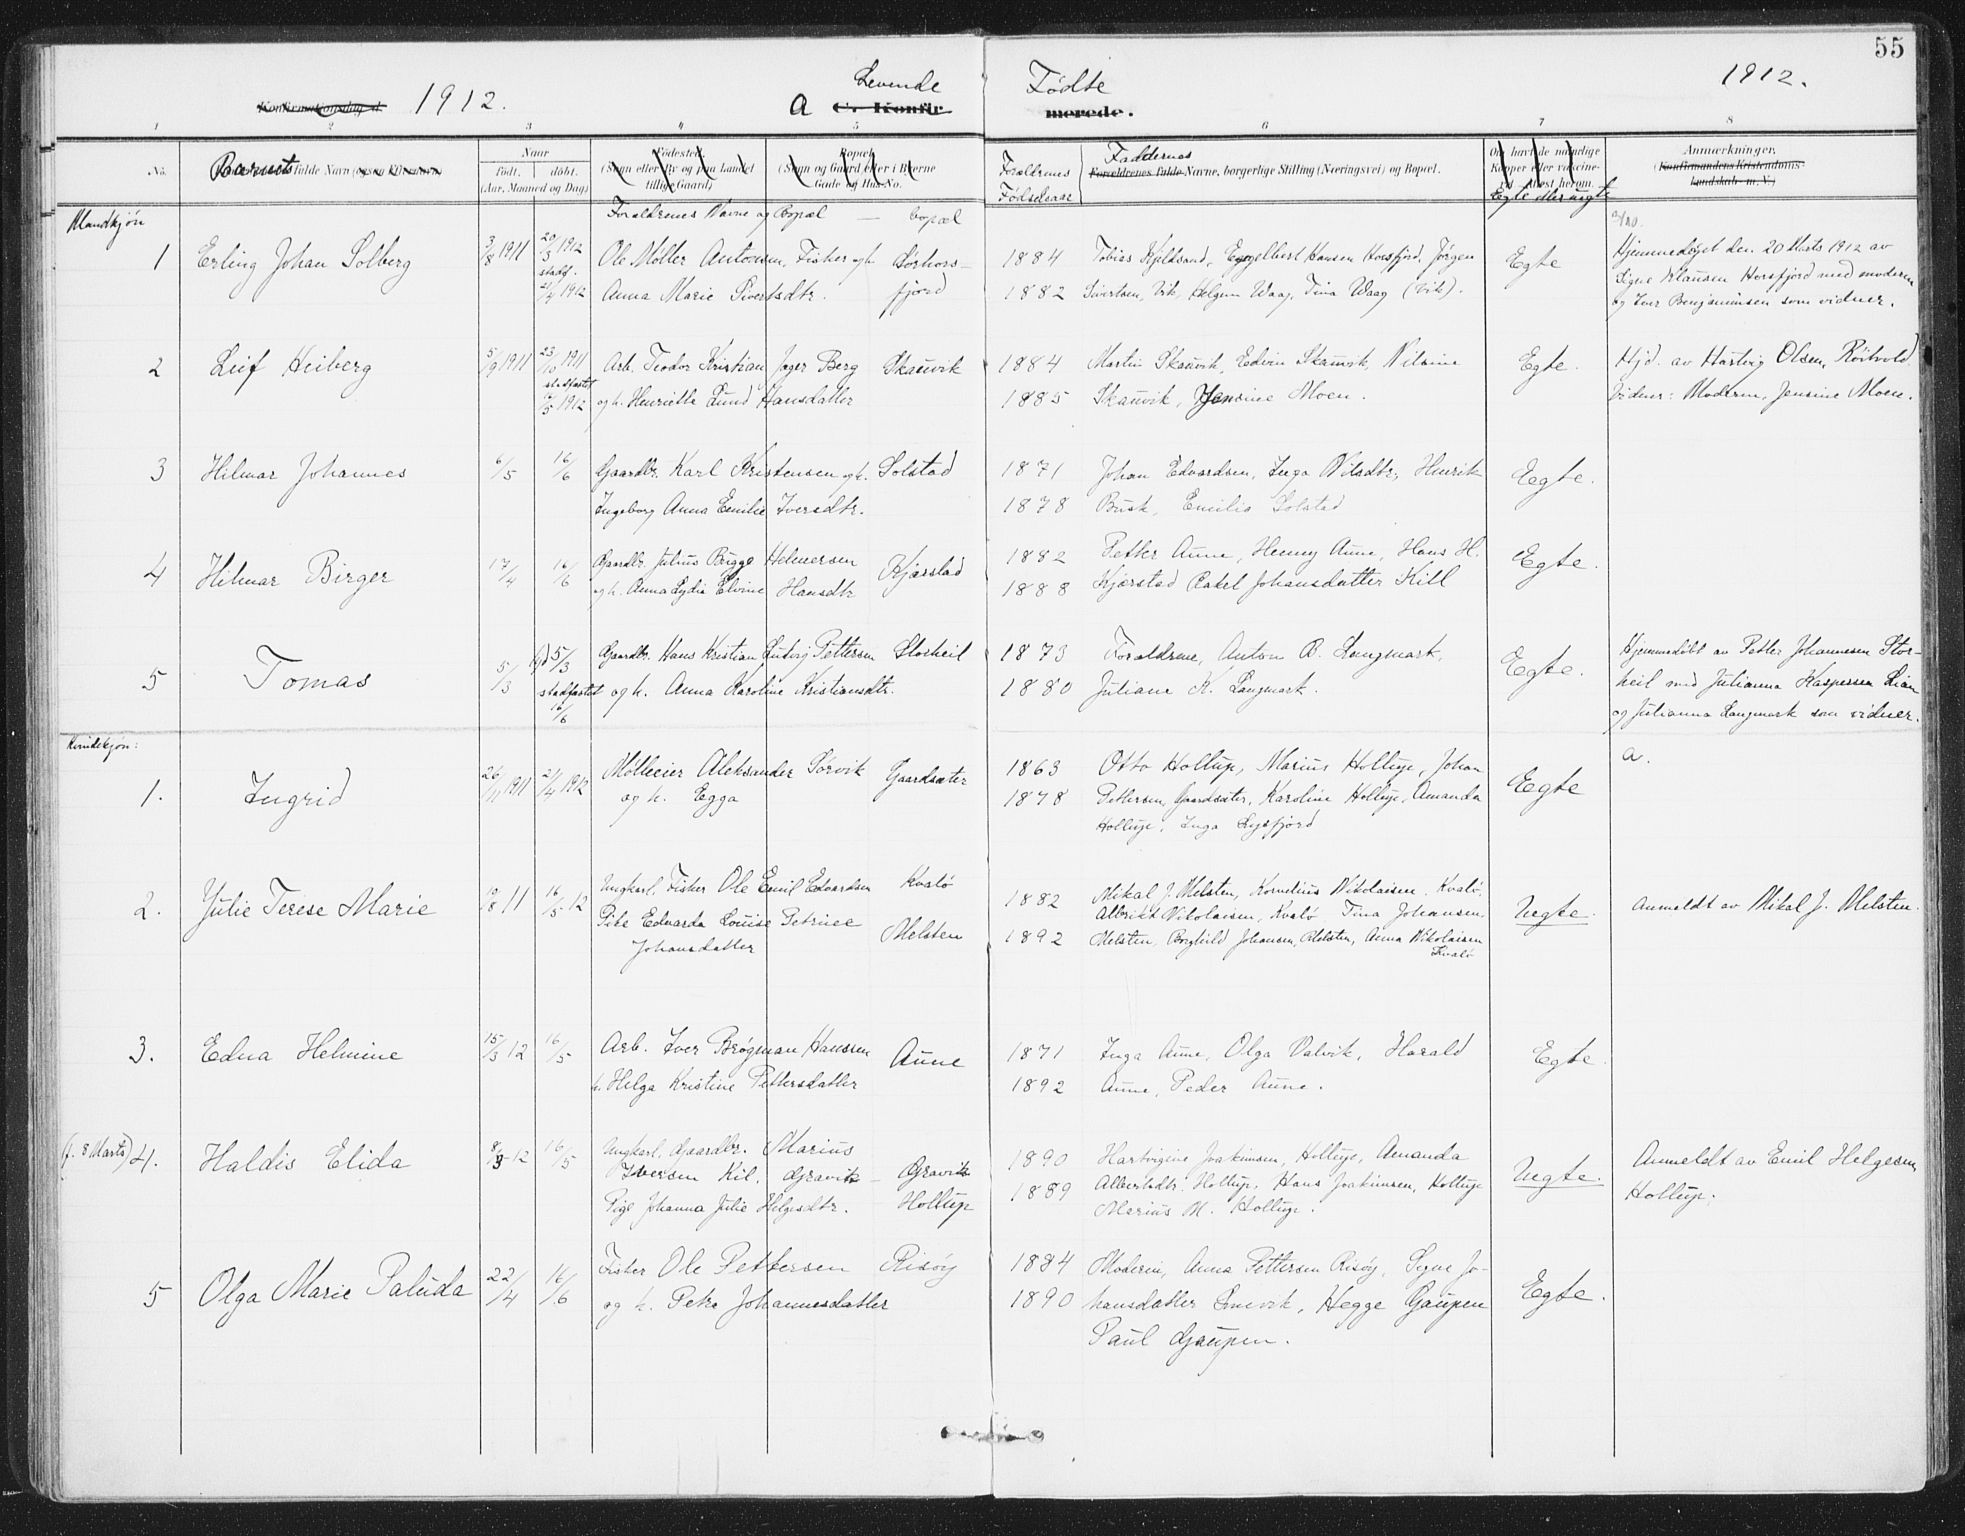 55
1912.
Levende
Fødte
1912.
Konfirmationsdag d.
A C. Konfir
merede.
1 2 3 4 5 6 7 8
No.
Barnets fulde Navn
Naar
Født. døbt.
(Aar, Maaned og Dag)
Fødested
(Sogn eller By og paa Landet
tillige Gaard)
Bopæl
(Sogn og Gaard eller i Byerne
Gade og Hus-No.
Forældrenes
Fødselsaar
Faddernes
Forældrenes fulde Navne, borgerlige Stilling (Næringsvei) og Bopæl.
Om havt de naturlige
Kopper eller vaccine-
Egte eller uegte
Anmærkninger.
(Konfirmandens Kristendoms-
kundskab m. V.)
Mandkjøn
Forældrenes Navne og Bopæl — bopæl
1 Erling Johan Solberg 3/8 1911 20/3 1912 Ole Møller Antonsen, Fisker og h. Sørhors- 1884 Tobias Kjeldsand, Engelbert Hansen Horsfjord, Jørgen Egte Hjemmedøpt den 20 Marts 1912 av
stadf. 21/4 1912 Anna Marie Sivertsdtr. fjord 1882 Sivertsen, Vik, Helgum Waag, Tina Waag (Vik). Signe Klausen Horsfjord med moderen
og Iver Benjaminsen som vidner.
2 Leif Heiberg 5/9 1911 23/10 1911 Arb. Teodor Kristian Jager Berg Skauvik 1884 Martin Skauvik, Edvin Skauvik, Nilsine Egte. Hjd. av Hartvig Olsen, Röitvold
stadfæstet 1912 og h. Henriette Lund Hansdatter 1885 Skauvik, Jensine Moen. Vidner: Moderen, Jensine Moen.
3 Hilmar Johannes 6/5 16/6 Gaardbr. Karl Kristensen og h. Solstad 1871 Johan Edvardsen, Inga Nilsdtr, Henrik Egte.
Ingeborg Anna Emilie Iversdtr. 1878 Busk, Emilia Solstad
4 Hilmar Birger 17/4 16/6 Gaardbr. Julius Brügge Helmersen Kjærstad 1882 Petter Aune, Henny Aune, Hans H. Egte.
og h. Anna Lydia Elvine Hansdtr 1888 Kjærstad Rakel Johansdatter Kill
5 Tomas 5/3 5/3 Gaardbr. Hans Kristian Ludvig Pettersen Storheil 1873 Forældrene, Anton B. Langmark, Egte. Hjemmedöbt av Petter Johannesen Stor-
stadfæstet 16/6 og h. Anna Karoline Kristiansdtr. 1880 Juliane K. Langmark. heil med Julianna Kaspersen Lian
og Julianna Langmark som vidner.
Kvindekjøn:
a.
1. Ingrid 26/11 1911 21/4 1912 Mølleeier Aleksander Sørvik Gaardsæter 1863 Otto Hollup, Marius Hollup, Johan Egte
og h. Egga 1878 Pettersen, Gaardsæter, Karoline Hollup, Amanda
Hollup, Inga Lysfjord
2. Julie Terese Marie 19/8 11 16/5 12 Ungkarl, Fisker Ole Emil Edvardsen Kvalö 1882 Mikal J. Melsten, Kornelius Nikolaisen Kvalö, Uegte. Anmeldt av Mikal J. Melsten.
Pike Edvarda Louise Petrine Melsten Albrikt Nikolaisen, Kvalö, Tina Johansen,
Johansdatter 1892 Melsten, Borghild Johansen, Melsten, Anna Nikolaisen
Kvalö
3. Edna Helmine 15/3 12 16/5 Arb. Iver Brøgman Hanssen Aune 1871 Inga Aune, Olga Valvik, Harald Egte.
h. Helga Kristine Pettersdatter 1892 Aune, Peder Aune.
(f. 8 Marts) 4. Haldis Elida 8/3-12 16/5 Ungkarl, Gaardbr. Marius 1890 Hartvigine Joakimsen, Hollup, Amanda Uegte. Anmeldt av Emil Helgesen
Iversen Kil, Gravik — Gravik 1889 Albertsdtr. Hollup, Hans Joakimsen, Hollup Hollup.
Pige Johanna Julie Helgesdtr. Hollup Marius M. Hollup.
5 Olga Marie Paluda 22/4 16/6 Fisker Ole Pettersen Risöy 1884 Moderen, Anna Pettersen Risöy, Signe Jo- Egte.
og h. Petra Johannesdatter 1890 hansdatter Smevik, Hegge Gaupen
Paul Gaupen.